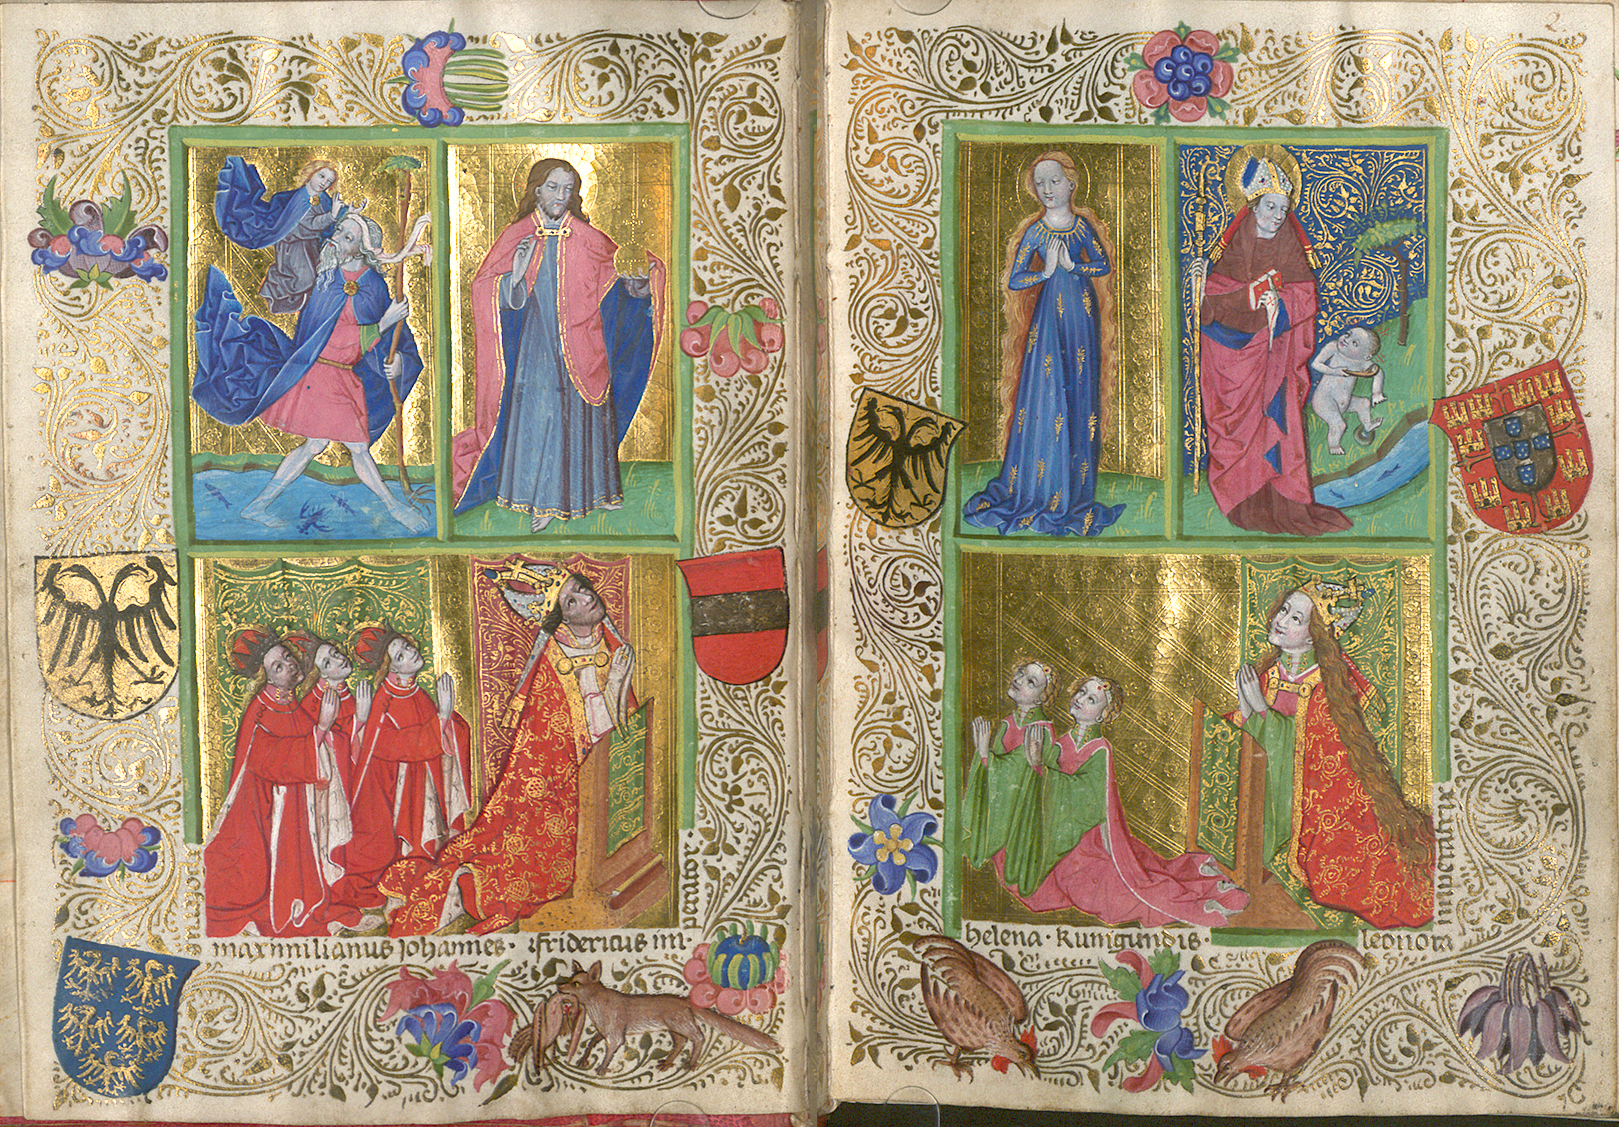 maximilianus Johannes · ffridericus im-
perator
2
helena · kunigundis ·
leonora
imperatrix